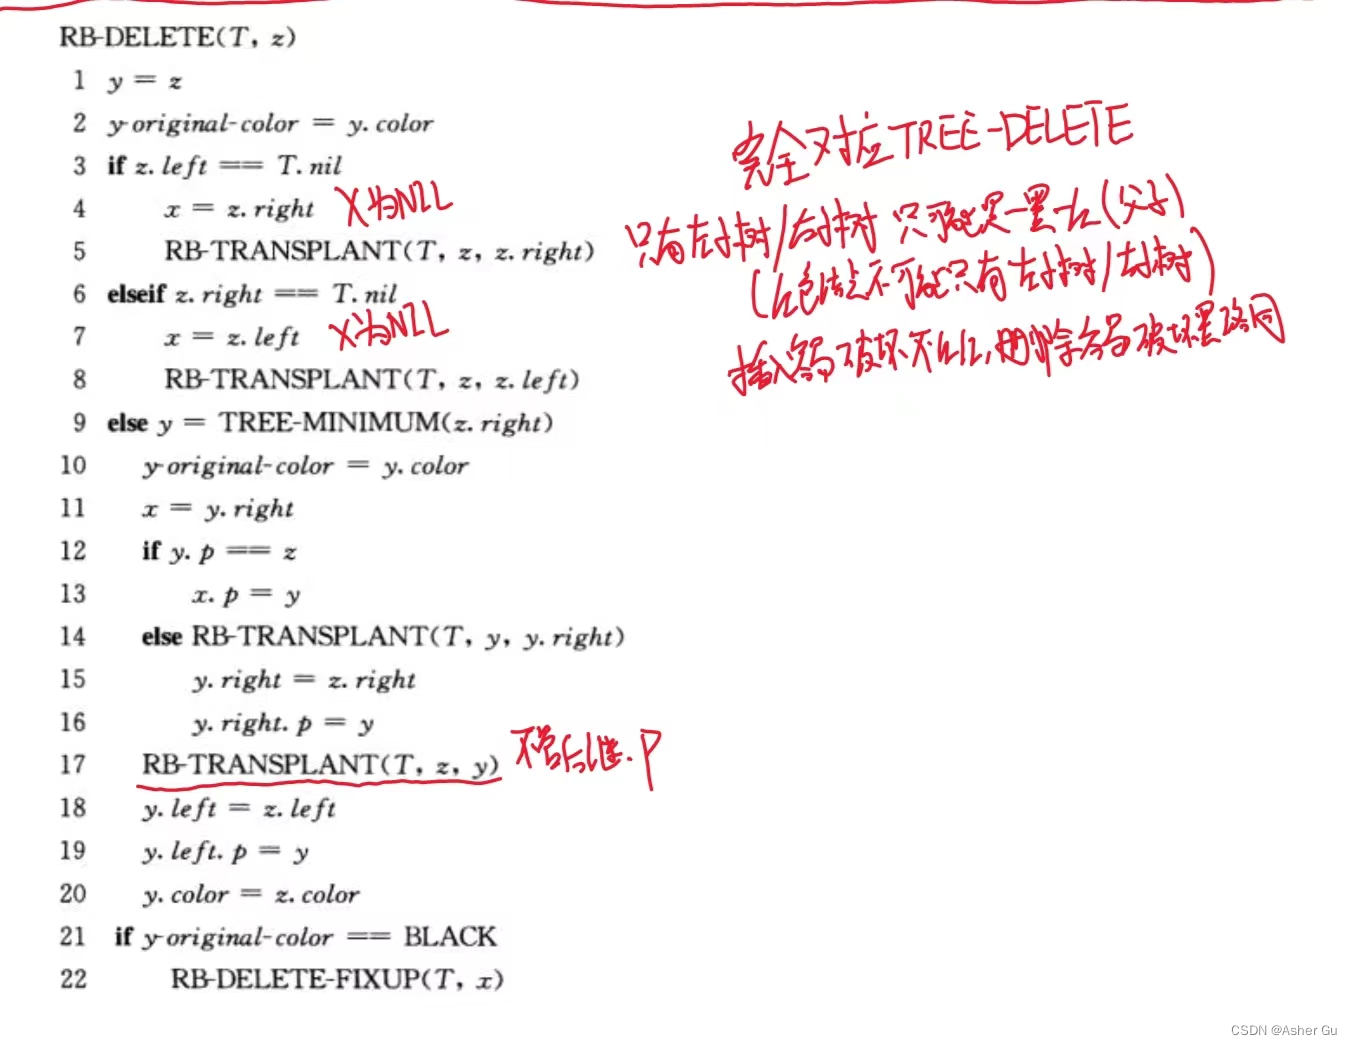 RB-DELETE(T, z)
1 y = z
2 y-original-color = y.color
3 if z.left == T.nil
4 x = z.right X为NIL
5 RB-TRANSPLANT(T, z, z.right)
6 elseif z.right == T.nil
7 x = z.left X为NIL
8 RB-TRANSPLANT(T, z, z.left)
9 else y = TREE-MINIMUM(z.right)
10 y-original-color = y.color
11 x = y.right
12 if y.p == z
13 x.p = y
14 else RB-TRANSPLANT(T, y, y.right)
15 y.right = z.right
16 y.right.p = y
17 RB-TRANSPLANT(T, z, y)不管后继.P
18 y.left = z.left
19 y.left.p = y
20 y.color = z.color
21 if y-original-color == BLACK
22 RB-DELETE-FIXUP(T, x)
完全对应TREE-DELETE
只有左子树/右子树 只可能是一黑一红(父子)
(红色结点不可能只有左子树/右子树)
插入容易破坏不红红,删除容易破坏黑路同
CSDN @Asher Gu